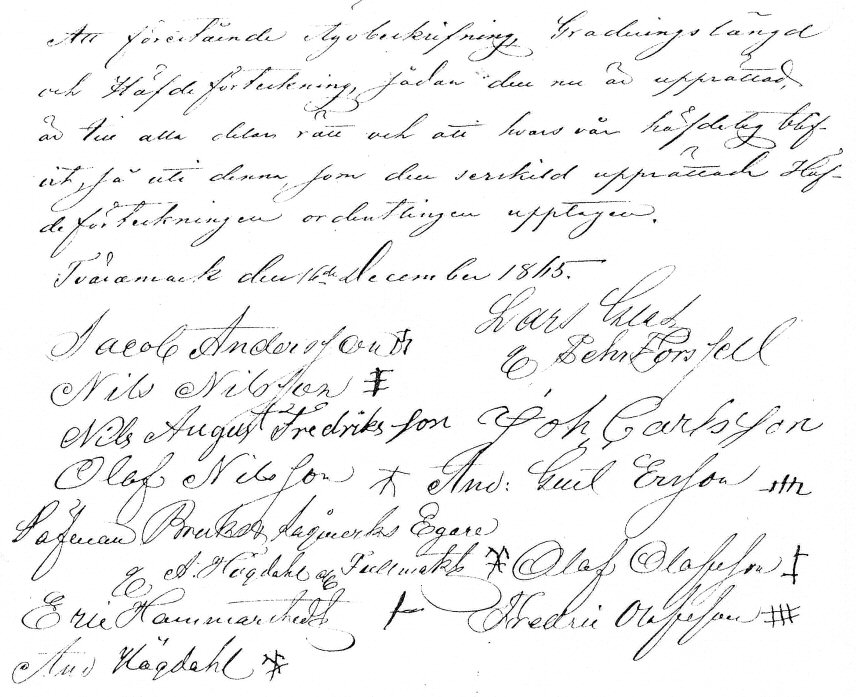 Att förestående Egobeskrifning, Graderingslängd
och Häfdeförteckning, sådan den nu är upprättad,
är till alla delar rätt och att hvars vår häfdeteg blif-
vit, så uti denna, som den serskild upprättade Häf-
deförteckningen ordentligen upptagen.
Tväråmark den 16de December 1865.
Jacob Andersson
Lars
Nils Nilsson
Pehr Forssell
Nils August Fredriksson Joh Carlsson
Olof Nilsson And: Gust Ersson
Bruks Sågwerks Egare
A. Högdahl Fullmakt Olof Olofsson
Eric Hammarstedt Fredric Olofsson
And Högdahl